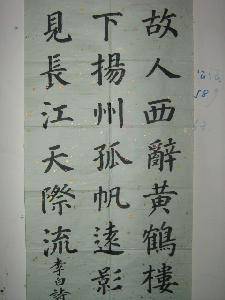 故人西辭黃鶴樓
下揚州孤帆遠影
見長江天際流
李白詩
58